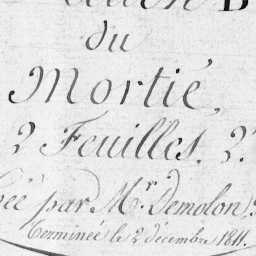 B
du
Mortié,
2 Feuilles. 2.
par Mr. Demolon,
Terminée le 2 décembre 1811.